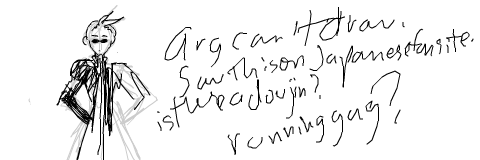 Arg can't draw.
Saw this on Japanese fansite.
is there a doujin?
running gag?